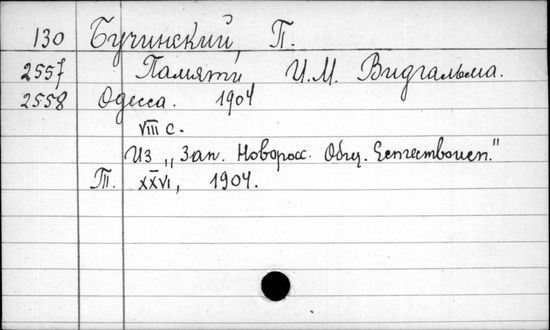 130 Бучинский, П.
2557 Памяти И.М. Видгальма.
2558 Одесса. 1904
VIII с.
Из „Зап. Новоросс. Общ. Естествоисп."
Т. XXVI, 1904.